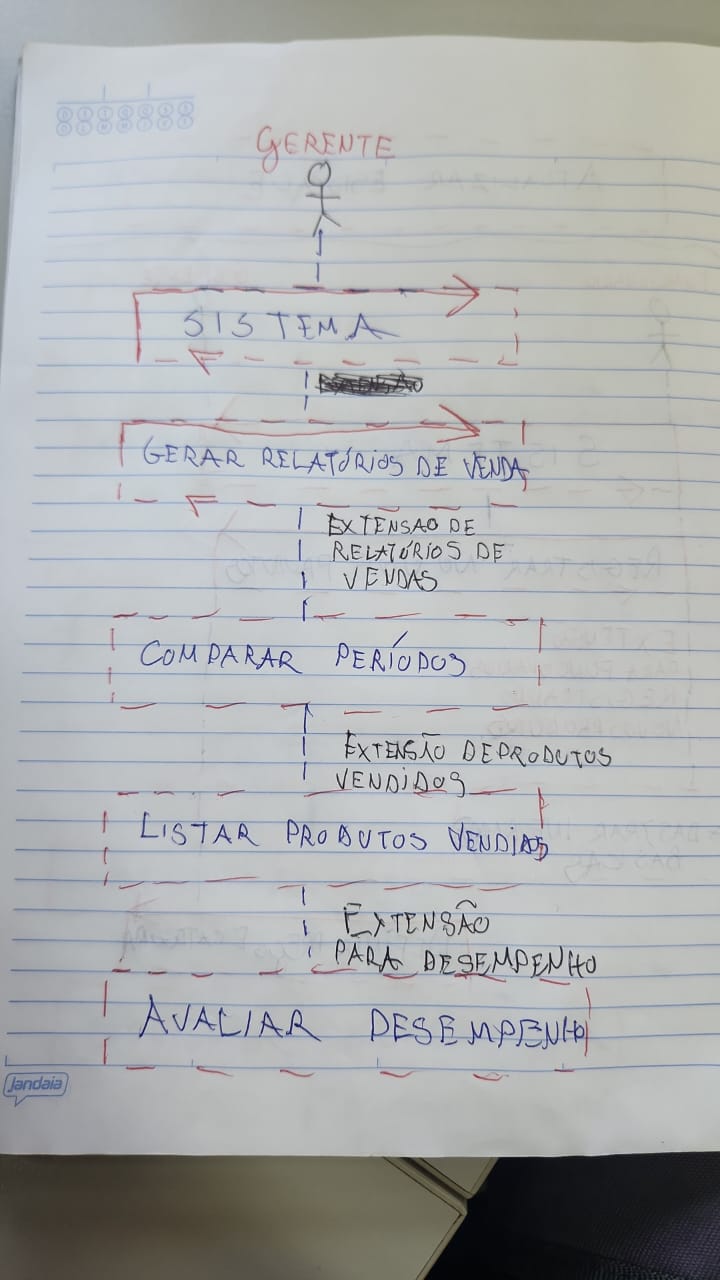 GERENTE
SISTEMA
GERAR RELATÓRIOS DE VENDA
EXTENSAO DE
RELATÓRIOS DE
VENDAS
COMPARAR PERÍODOS
EXTENSÃO DE PRODUTOS
VENDIDOS
LISTAR PRODUTOS VENDIDOS
EXTENSÃO
PARA DESEMPENHO
AVALIAR DESEMPENHO
Jandaia